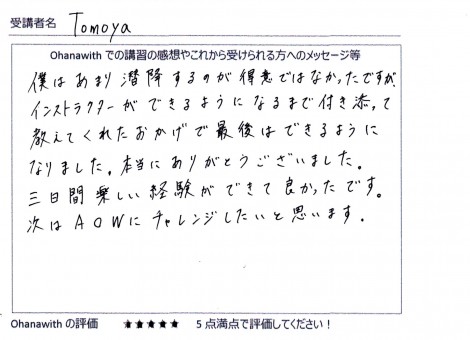 受講者名 Tomoya
Ohanawith での講習の感想やこれから受けられる方へのメッセージ等
僕はあまり潜降するのが得意ではなかったですが、
インストラクターができるようになるまで付き添って
教えてくれたおかげで最後はできるように
なりました。本当にありがとうございました。
三日間楽しい経験ができて良かったです。
次はAOWにチャレンジしたいと思います。
Ohanawith の評価 ★★★★★ 5 点満点で評価してください！